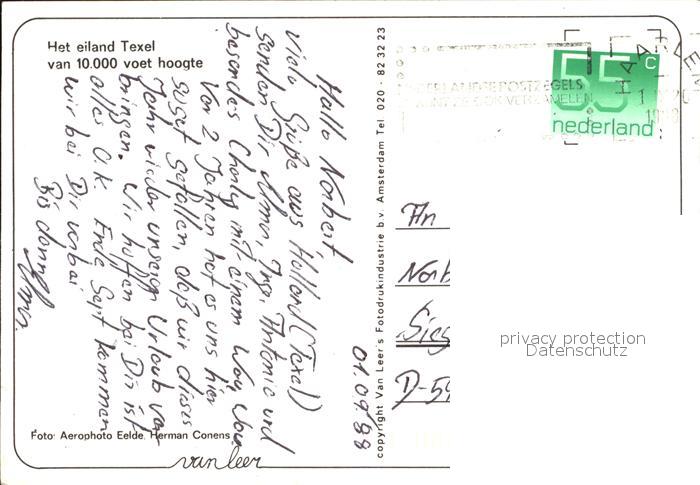 Het eiland Texel
van 10.000 voet hoogte
Hallo Norbert
Viele Grüße aus Holland (Texel)
senden Dir Almar, Inga, Antonie und
besonders Charly mit einem Wau, Wau
Vor 2 Jahren hat es uns hier
so gut gefallen, daß wir dieses
Jahr wieder unseren Urlaub ver-
bringen. Wir hoffen bei Dir ist
alles O.K. Ende Sept kommen
wir bei Dir vorbei
Bis dann
01.09.88
Foto: Aerophoto Eelde. Herman Conens
van leer
copyright Van Leer's Fotodrukindustrie b.v. Amsterdam Tel 020 - 82 32 23
55 c
nederland
NEDERLANDSE POSTZEGELS
KUNT U OOK VERZAMELEN
HAARLEM
An
Norb
Sieg
D-54
privacy protection
Datenschutz